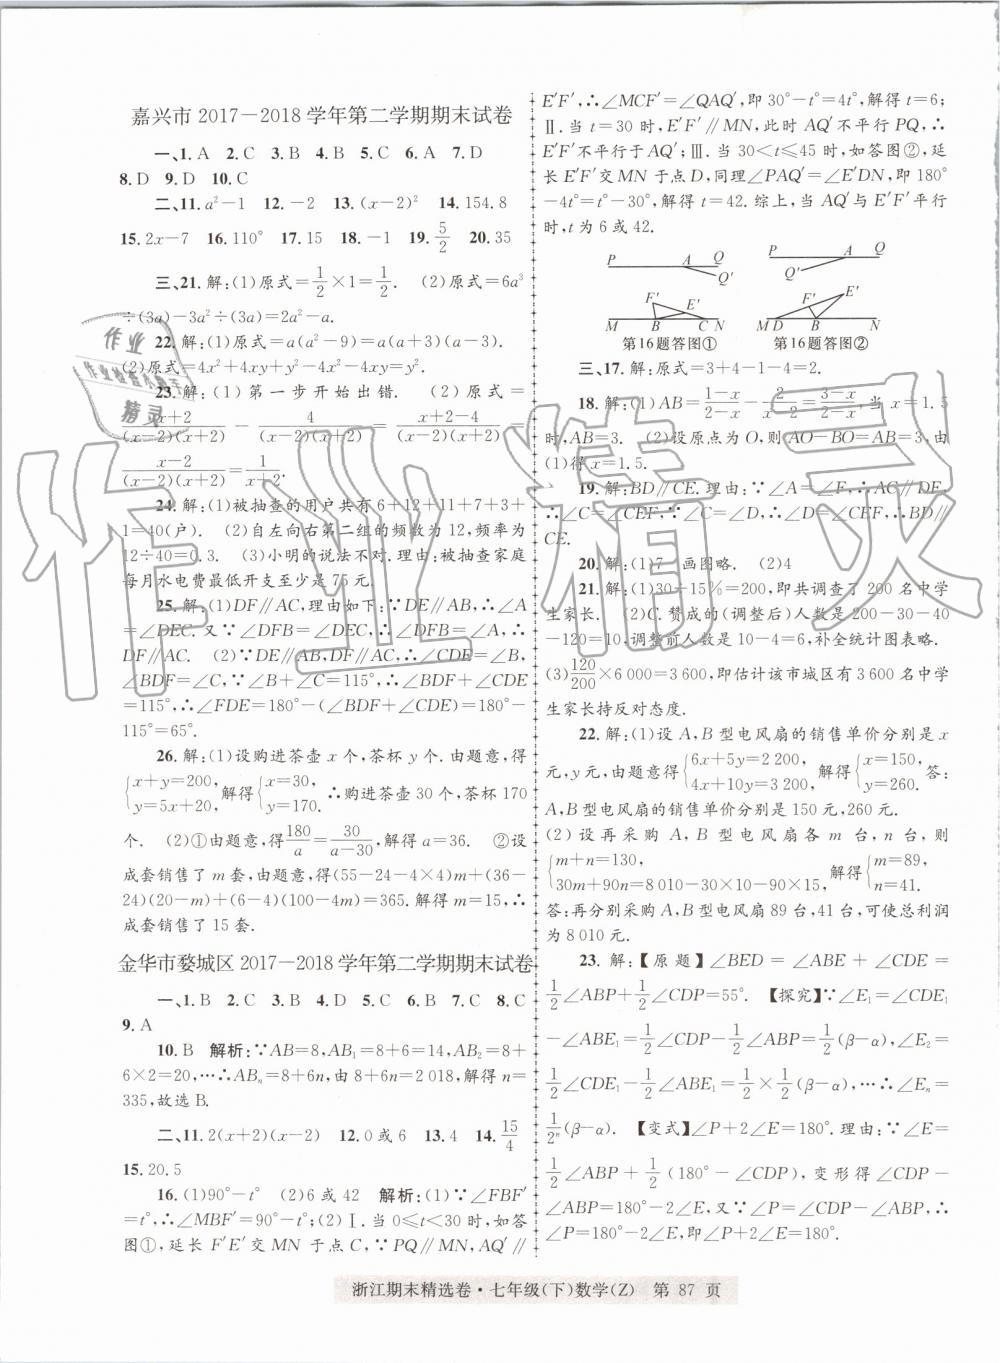 嘉兴市 2017—2018 学年第二学期期末试卷
一、1. A 2. C 3. B 4. B 5. C 6. A 7. D
8. D 9. D 10. C
二、11. a²－1 12. －2 13. (x－2)² 14. 154.8
15. 2x－7 16. 110° 17. 15 18. －1 19. 5/2 20. 35
三、21. 解:(1)原式＝1/2×1＝1/2. (2)原式＝6a³
÷(3a)－3a²÷(3a)＝2a²－a.
22. 解:(1)原式＝a(a²－9)＝a(a＋3)(a－3).
(2)原式＝4x²＋4xy＋y²－4x²－4xy＝y².
23. 解:(1)第一步开始出错. (2)原式＝
(x＋2)/((x－2)(x＋2))－4/((x－2)(x＋2))＝(x＋2－4)/((x－2)(x＋2))＝
(x－2)/((x－2)(x＋2))＝1/(x＋2).
24. 解:(1)被抽查的用户共有 6＋12＋11＋7＋3＋
1＝40(户). (2)自左向右第二组的频数为 12,频率为
12÷40＝0.3. (3)小明的说法不对.理由:被抽查家庭
每月水电费最低开支至少是 75 元.
25. 解:(1)DF∥AC,理由如下:∵DE∥AB,∴∠A
＝∠DEC.又∵∠DFB＝∠DEC,∴∠DFB＝∠A,∴
DF∥AC. (2)∵DE∥AB,∴∠CDE＝∠B,
∠BDF＝∠C,∵∠B＋∠C＝115°,∴∠BDF＋∠CDE
＝115°,∴∠FDE＝180°－(∠BDF＋∠CDE)＝180°－
115°＝65°.
26. 解:(1)设购进茶壶 x 个,茶杯 y 个.由题意,得
{x＋y＝200, y＝5x＋20, 解得{x＝30, y＝170. ∴购进茶壶 30 个,茶杯 170
个. (2)①由题意,得180/a＝30/(a－30),解得 a＝36. ②设
成套销售了 m 套,由题意,得(55－24－4×4)m＋(36－
24)(20－m)＋(6－4)(100－4m)＝365.解得 m＝15,∴
成套销售了 15 套.
金华市婺城区 2017—2018 学年第二学期期末试卷
一、1. B 2. C 3. B 4. D 5. D 6. B 7. C 8. C
9. A
10. B 解析:∵AB＝8,AB₁＝8＋6＝14,AB₂＝8＋
6×2＝20,…∴ABₙ＝8＋6n,由 8＋6n＝2 018,解得 n＝
335,故选 B.
二、11. 2(x＋2)(x－2) 12. 0 或 6 13. 4 14. 15/4
15. 20.5
16. (1)90°－t° (2)6 或 42 解析:(1)∵∠FBF′
＝t°,∴∠MBF′＝90°－t°;(2)Ⅰ.当 0≤t＜30 时,如答
图①,延长 F′E′交 MN 于点 C,∵PQ∥MN,AQ′∥
E′F′,∴∠MCF′＝∠QAQ′,即 30°－t°＝4t°,解得 t＝6;
Ⅱ.当 t＝30 时,E′F′∥MN,此时 AQ′不平行 PQ,∴
E′F′不平行于 AQ′;Ⅲ.当 30＜t≤45 时,如答图②,延
长 E′F′交 MN 于点 D,同理∠PAQ′＝∠E′DN,即 180°
－4t°＝t°－30°,解得 t＝42.综上,当 AQ′与 E′F′平行
时,t 为 6 或 42.
P A Q Q′ F′ E′ M B C N
第16题答图①
P A Q Q′ F′ E′ M D B N
第16题答图②
三、17. 解:原式＝3＋4－1－4＝2.
18. 解:(1)AB＝(1－x)/(2－x)－2/(x－2)＝(3－x)/(2－x),当 x＝1.5
时,AB＝3. (2)设原点为 O,则 AO－BO＝AB＝3,由
(1)得 x＝1.5.
19. 解:BD∥CE.理由:∵∠A＝∠F,∴AC∥DF,
∴∠C＝∠CEF,∵∠C＝∠D,∴∠D＝∠CEF,∴BD∥
CE.
20. 解:(1)7 画图略. (2)4
21. 解:(1)30÷15%＝200,即共调查了 200 名中学
生家长. (2)C.赞成的(调整后)人数是 200－30－40
－120＝10,调整前人数是 10－4＝6,补全统计图表略.
(3)120/200×6 000＝3 600,即估计该市城区有 3 600 名中
学生家长持反对态度.
22. 解:(1)设 A,B 型电风扇的销售单价分别是 x
元,y元,由题意得{6x＋5y＝2 200, 4x＋10y＝3 200, 解得{x＝150, y＝260. 答:
A,B 型电风扇的销售单价分别是 150 元,260 元.
(2)设再采购 A,B 型电风扇各 m 台,n 台,则
{m＋n＝130, 30m＋90n＝8 010－30×10－90×15, 解得{m＝89, n＝41.
答:再分别采购 A,B 型电风扇 89 台,41 台,可使总利润
为 8 010 元.
23. 解:【原题】∠BED＝∠ABE＋∠CDE＝
1/2∠ABP＋1/2∠CDP＝55°. 【探究】∵∠E₁＝∠CDE₁
－∠ABE₁＝1/2∠CDP－1/2∠ABP＝1/2(β－α),∠E₂＝
1/2∠CDE₁－1/2∠ABE₁＝1/2×1/2(β－α),…∴∠Eₙ＝
1/2ⁿ(β－α). 【变式】∠P＋2∠E＝180°.理由:∵∠E＝
1/2∠ABP＋1/2(180°－∠CDP),变形得∠CDP－
∠ABP＝180°－2∠E,又∵∠P＝∠CDP－∠ABP,∴
∠P＝180°－2∠E,即∠P＋2∠E＝180°.
浙江期末精选卷·七年级(下)数学(Z) 第 87 页
作业精灵